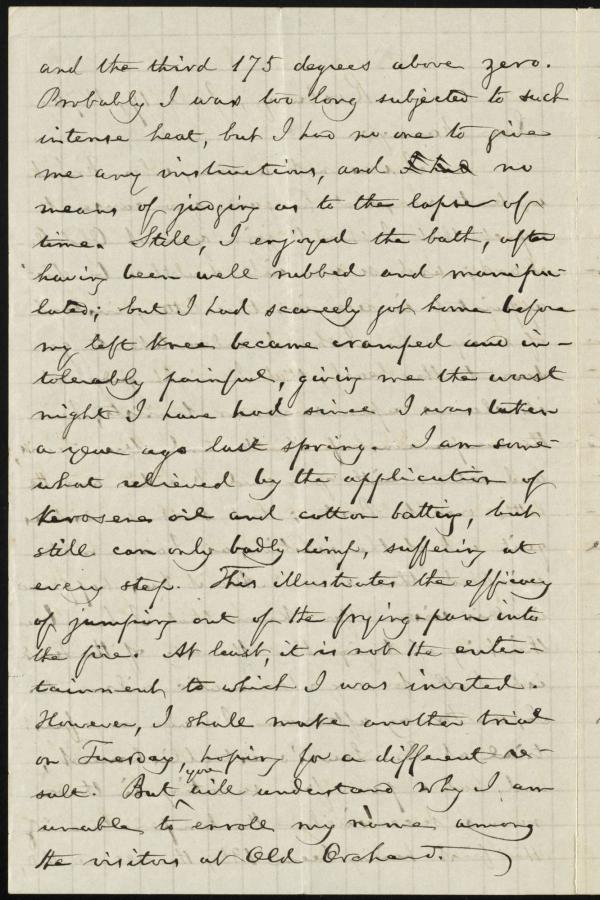 and the third 175 degrees above zero.
Probably I was too long subjected to such
intense heat, but I had no one to give
me any instructions, and I had no
means of judging as to the lapse of
time. Still, I enjoyed the bath, after
having been well rubbed and manipu-
lated; but I had scarcely got home before
my left knee became cramped and in-
tolerably painful, giving me the worst
night I have had since I was taken
a year ago last spring. I am some-
what relieved by the application of
kerosene oil and cotton batting, but
still can only badly limp, suffering at
every step. This illustrates the efficacy
of jumping out of the frying-pan into
the fire. At least, it is not the enter-
tainment to which I was invited.
However, I shall make another trial
on Tuesday, hoping for a different re-
sult. But you will understand why I am
unable to enroll my name among
the visitors at Old Orchard.